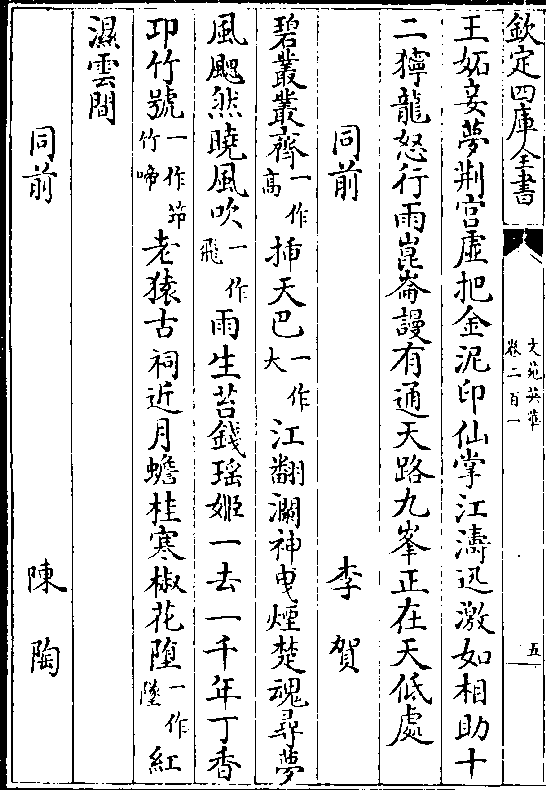 欽定四庫全書
文苑英華
卷二百一
五
王妬妾夢荆宫虛把金泥印仙掌江濤迅激如相助十
二獰龍怒行雨崑崙謾有通天路九峯正在天低處
同前 李賀
碧叢叢齊一作高揷天巴一作大江翻瀾神曳煙楚魂尋夢
風颸然曉風吹一作飛雨生苔錢瑶姬一去一千年丁香
卭竹號一作筇竹啼老猿古祠近月蟾桂寒椒花墮一作墜紅
濕雲間
同前 陳陶